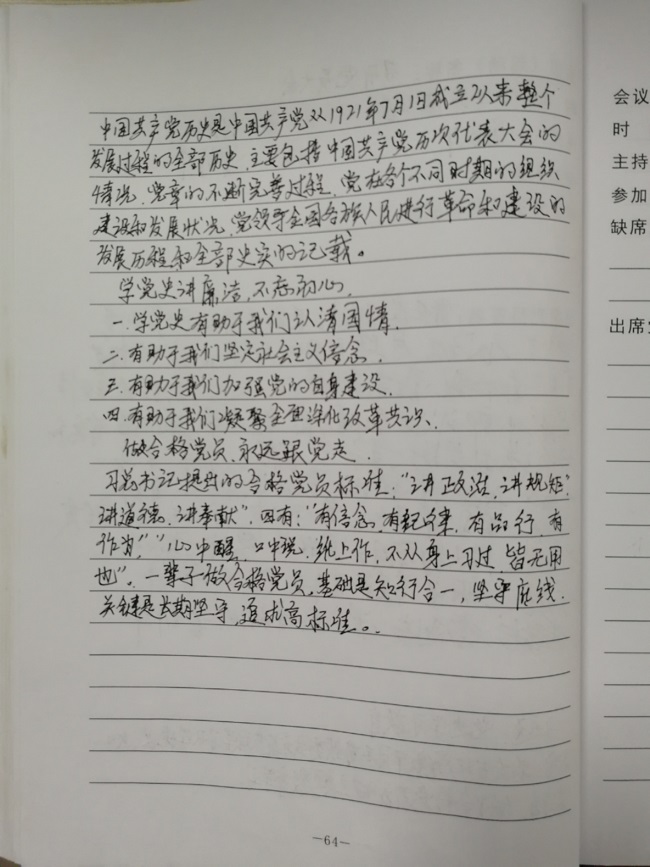 中国共产党历史是中国共产党从1921年7月1日成立以来整个
发展过程的全部历史,主要包括中国共产党历次代表大会的
情况,党章的不断完善过程,党在各个不同时期的组织
建设和发展状况,党领导全国各族人民进行革命和建设的
发展历程和全部史实的记载。
学党史讲廉洁,不忘初心,
一.学党史有助于我们认清国情.
二.有助于我们坚定社会主义信念.
三.有助于我们加强党的自身建设.
四.有助于我们凝聚全面深化改革共识.
做合格党员,永远跟党走.
习总书记提出的合格党员标准:“讲政治,讲规矩,
讲道德,讲奉献”.四有:“有信念,有纪律,有品行,有
作为”,“心中醒,口中说,纸上作,不从身上习过,皆无用
也”.一辈子做合格党员,基础是知行合一,坚守底线.
关键是长期坚守,追求高标准。.
—64—
会议
时
主持
参加
缺席
出席